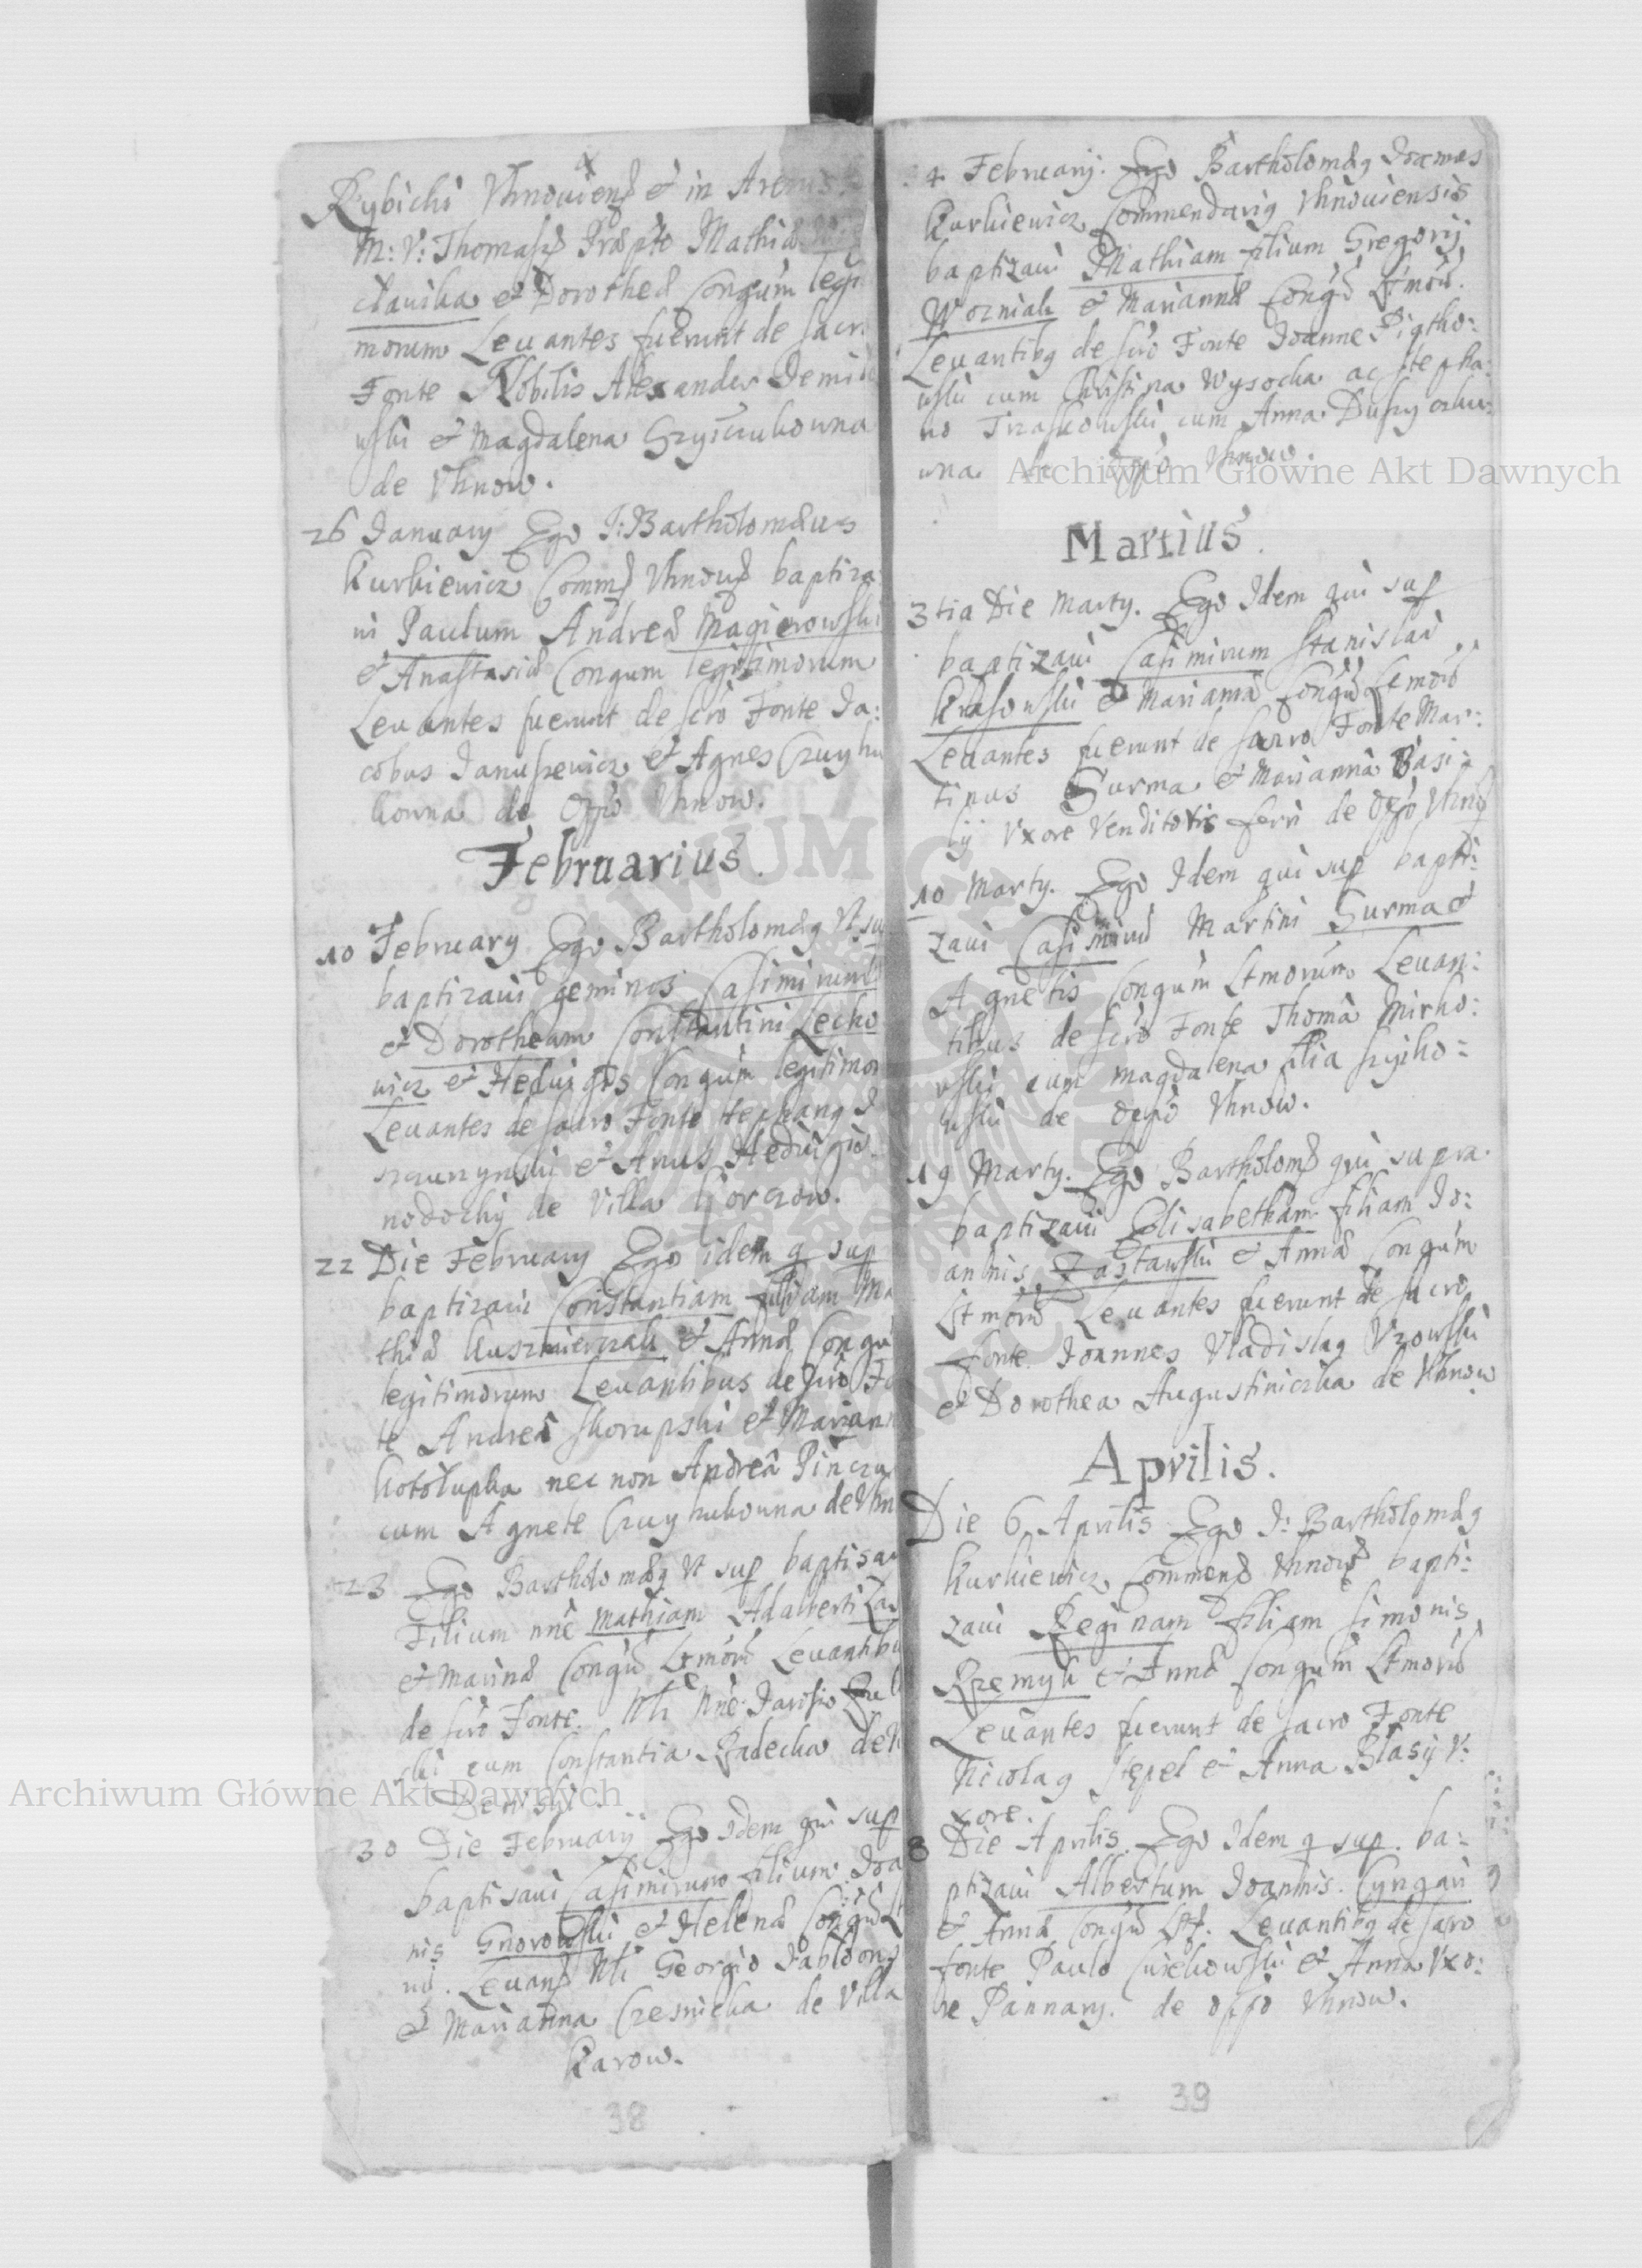 Rybichi Vhnouiens et in Arenis
M: V: Thomass Præpto Mathiæ
clauika et Dorotheæ Congum legi
morum Leuantes fuerunt de sacr
Fonte Nobilis Alexander Demi
wski et Magdalena Grysczukowna
de Vhnow.
26 January Ego J: Bartholomæus
Kurkiewicz Comm Vhnou baptiza
ui Paulum Andreæ Magierowski
et Anastasiæ Congum legitimorum
Leuantes fuerunt de scro Fonte Ja:
cobus Janusewicz et Agnes Czuyhu
kowna de Oppo Vhnow.
Februarius.
10 February Ego Bartholomæg Vt su
baptizaui geminos Casimirum
et Dorotheam Constantini Lecho
wicz et Heduigis Congum legitimor
Leuantes de sacro Fonte Stephang
et Anus Heduigis
de Villa Korczow.
22 Die February Ego idem q sup
baptizaui Constantiam filiam Ma
thiæ Kuszmierzak et Annæ Congu
legitimorum Leuantibus de scro Fo
te Andreæ Skorupski et Mariann
Kotołupka nec non Andreâ Pincza
cum Agnete Czuyhukowna de Vhn
23 Ego Bartholomæg Vt sup baptisau
Filium nne Mathiam Adalberti Za
et Marinæ Congu Ltmoru Leuantibu
de scro Fonte. Nli Nne
ski cum Constantia Radecka de
30 Die February Ego Idem qui sup
baptisaui Casimirum filium Joa
nis Gnorowski et Helenæ Congu Lt
Leuans Nli Georgio Jabłons
et Marianna Czesnicka de Villa
Karow.
38
4 February. Ego Bartholomæg Joannes
Kurkiewicz Commendarig Vhnouiensis
baptizaui Mathiam filium Gregory
Wozniak et Mariannæ Congu Ltmoru.
Leuantibg de scro Fonte Joanne Piątko:
wski cum Christina Wysocka ac Stepha:
no Traskowski cum Anna
wna de Oppo Vhnow.
Martius.
3tia Die Marty. Ego Idem qui sup
baptizaui Casimirum Stanislai
Krasowski et Mariannæ Congu Ltmoru
Leuantes fuerunt de sacro Fonte Mar:
tinus Surma et Marianna Basi:
lÿ Vxore Venditoris ferri de Oppo Vhno
10 Marty. Ego Idem qui sup bapti:
zaui Casimiru Martini Surma et
Agnetis Congum Ltmorum Leuan:
tibus de scro Fonte Thomâ Mirko:
wski cum Magdalena filia
wski de oppo Vhnow.
19 Marty. Ego Bartholom qui supra
baptizaui Elisabetham filiam Jo:
annis Zastawski et Annæ Congum
Ltmoru Leuantes fuerunt de sacro
Fonte Joannes Vladislag Vzowski
et Dorothea Augustiniczka de Vhnow
Aprilis.
Die 6 Aprilis Ego J: Bartholomæg
Kurkiewicz Commen Vhnow bapti:
zaui Reginam filiam Simonis
Rzemyk et Annæ Congum Ltmoru
Leuantes fuerunt de sacro Fonte
Nicolag Stepel et Anna Blasÿ V:
xore.
8 Die Aprilis. Ego Idem q sup. ba:
ptizaui Albertum Joannis. Cyngau
et Annæ Congu Ltt. Leuantibg de sacro
fonte Paulo et Anna Vxo:
re Pannary. de oppo Vhnow.
39
Archiwum Główne Akt Dawnych
Archiwum Główne Akt Dawnych